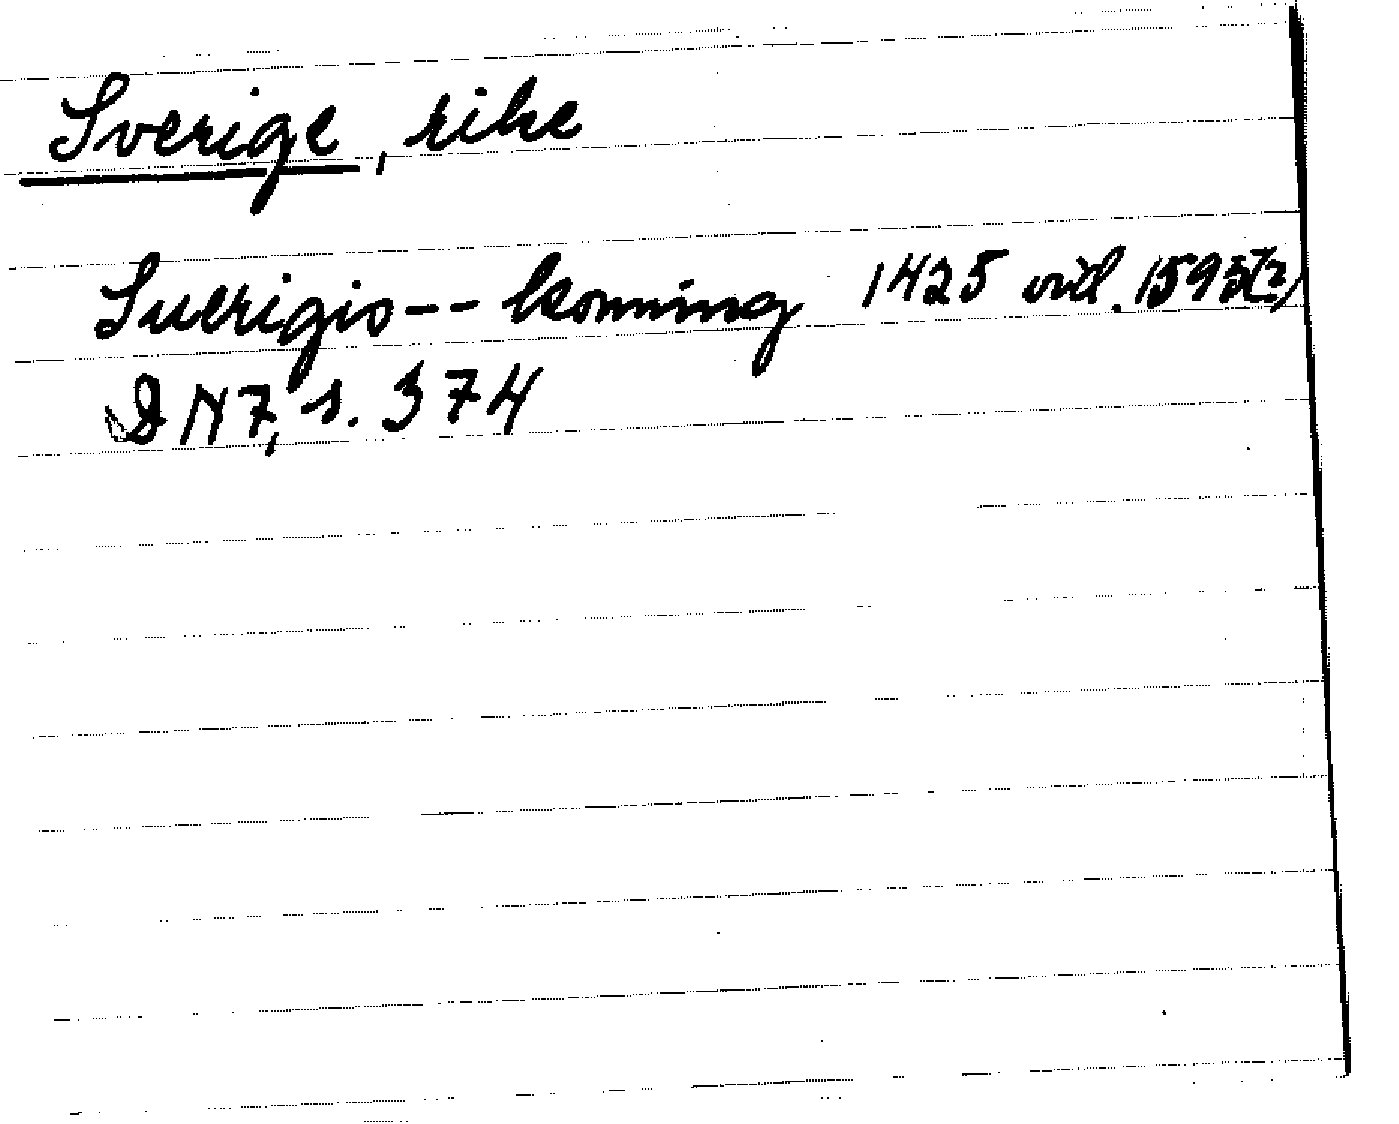 Sverige, rike
Suerigis -- konning 1425 vid. 1593
DN7, s. 374